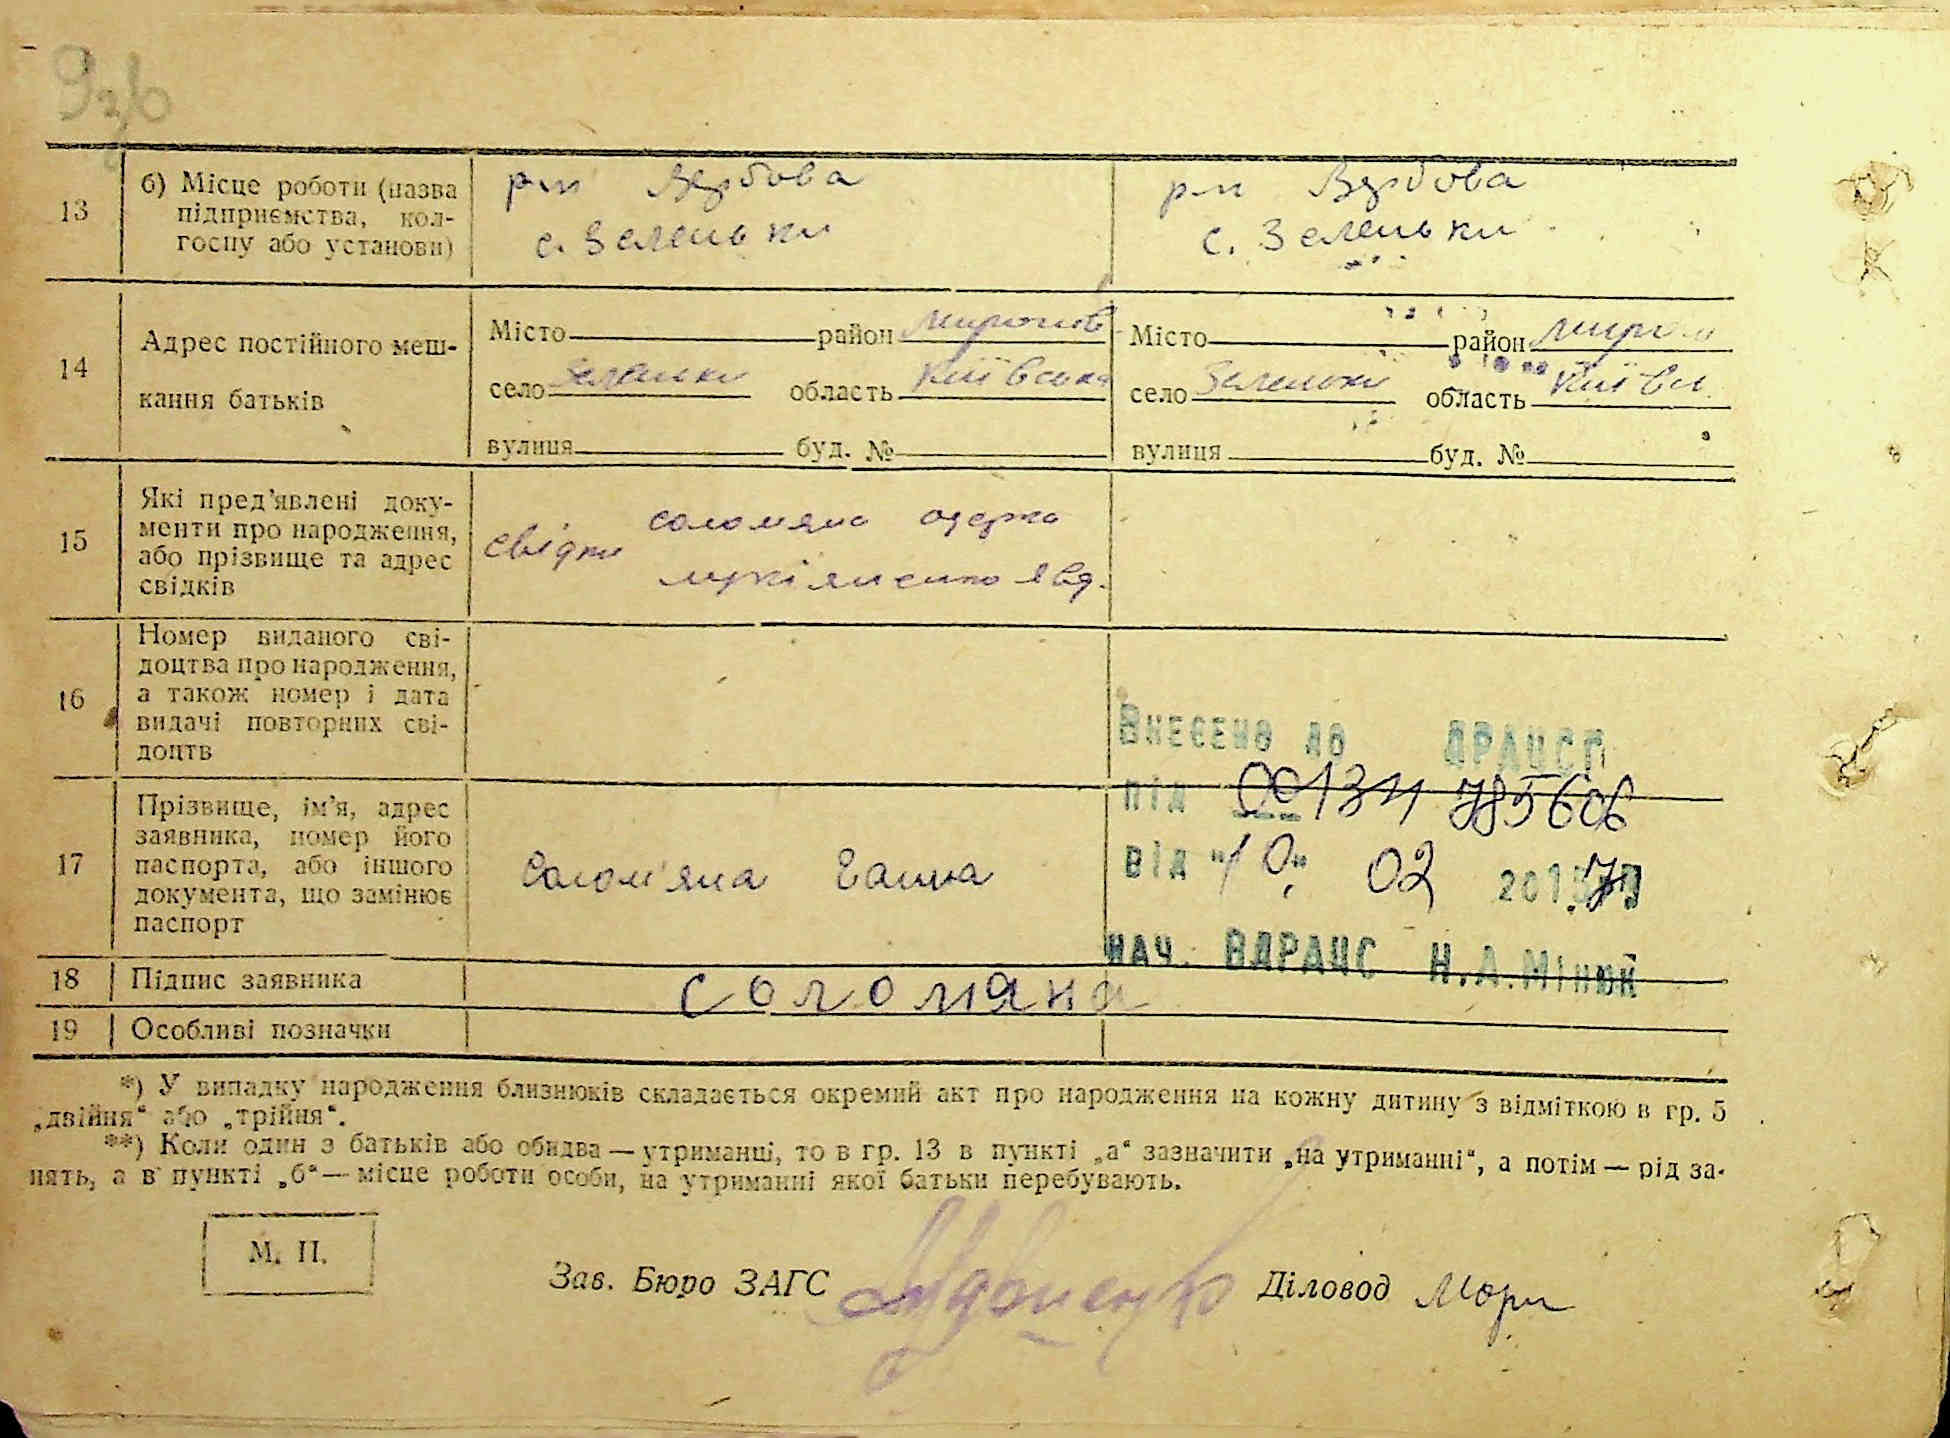 13
б) Місце роботи (назва
підприємства, кол-
госпу або установи)
с. Зеленьки
с. Зеленьки
14
Адрес постійного меш-
кання батьків
Місто район Миронов
село Зеленьки область Київська
вулиця буд. №
Місто район Мирон
село Зеленьки область Київс
вулиця буд. №
15
Які пред'явлені доку-
менти про народження,
або прізвище та адрес
свідків
свідки
16
Номер виданого сві-
доцтва про народження,
а також номер і дата
видачі повторних сві-
доцтв
17
Прізвище, ім'я, адрес
заявника, номер його
паспорта, або іншого
документа, що замінює
паспорт
Солом'яна Ганна
Внесено до ДРАЦСГ
під 00131 785606
від "10" 02 2017
нач. ВДРАЦС Н.А.Мінюк
18
Підпис заявника
Соломяна
19
Особливі позначки
*) У випадку народження близнюків складається окремий акт про народження на кожну дитину з відміткою в гр. 5
„двійня“ або „трійня“.
**) Коли один з батьків або обидва — утриманці, то в гр. 13 в пункті „а“ зазначити „на утриманні“, а потім — рід за-
нять, а в пункті „б“ — місце роботи особи, на утриманні якої батьки перебувають.
М. П.
Зав. Бюро ЗАГС
Діловод